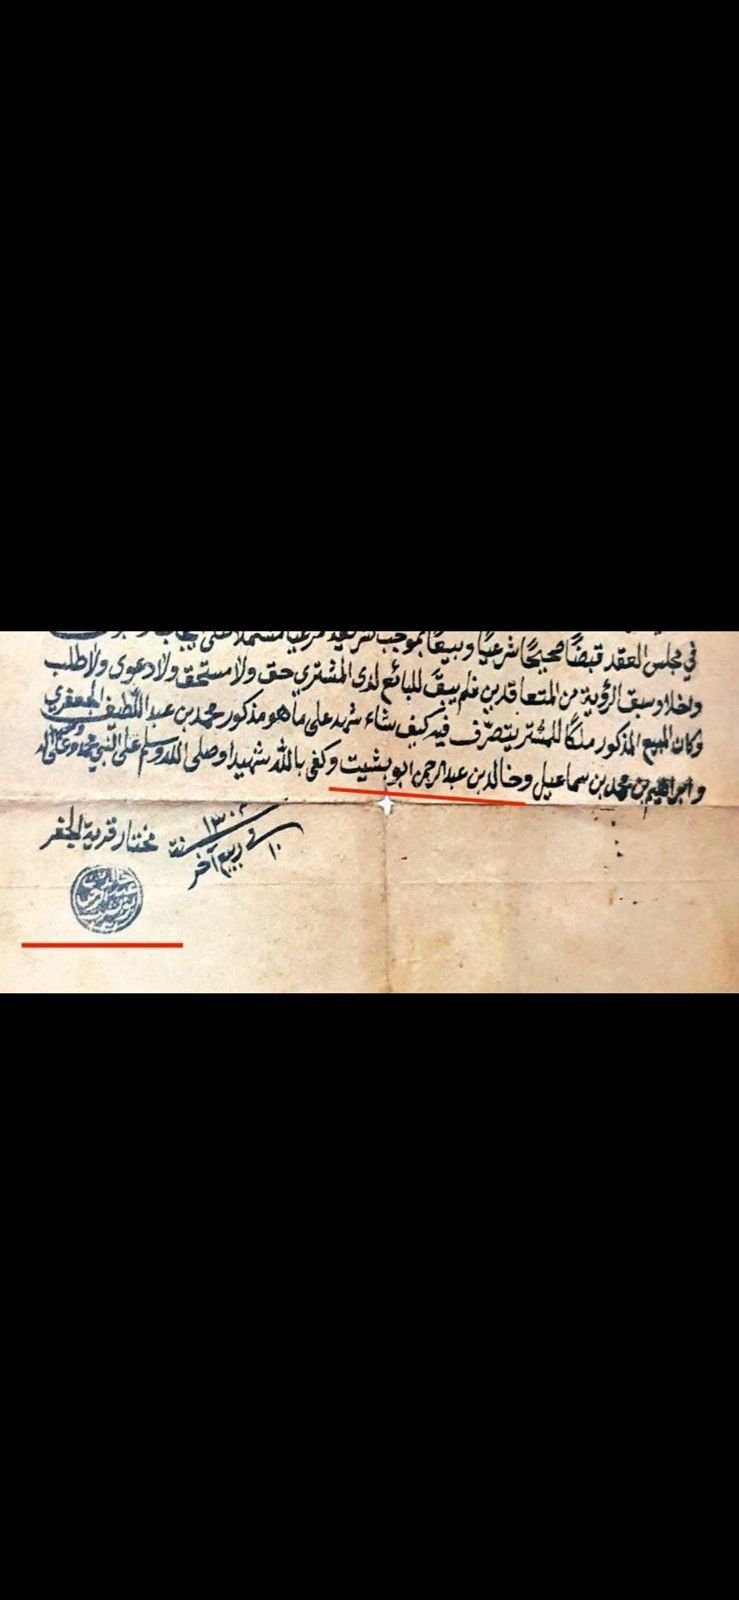 في مجلس العقد قبضًا صحيحًا شرعيًا وبيعًا بموجب
واخلا وسبق الرؤية من المتعاقدين فلم يبقَ للبائع لدى المشتري حق ولا مستحق ولا دعوى ولا طلب
وكان المبيع المذكور ملكًا للمشتر يتصرّف فيه كيف شاء شهد على ما هو مذكور محمد بن عبد اللطيف الجعفري
وابراهيم بن محمد بن سماعيل وخالد بن عبد الرحمن ابو بشيت وكفى بالله شهيدا وصلى الله وسلم على النبي محمد وعلى اله
وصحبه
في ١٠ ربيع آخر سنة ١٣٠٢
مختار قرية الجفر